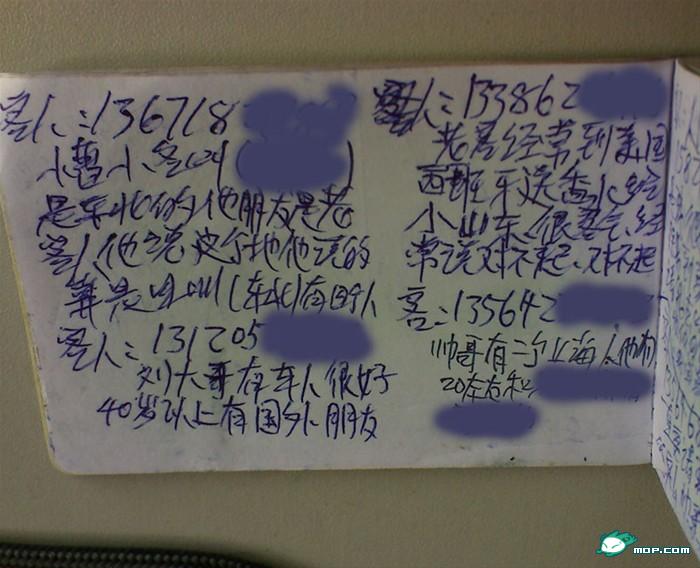 客人:136718
小曹小名叫( )
是东北的他朋友是老
客人他说这个地他说的
算是
客人:131205
刘大哥有车人很好
40岁以上有国外朋友
客人:133862
老客经常到美国
西班牙送香水给
小山东、很客气、经
常说对不起、对不起
客:135642
帅哥有 上海人他
20左右和
MOP.COM